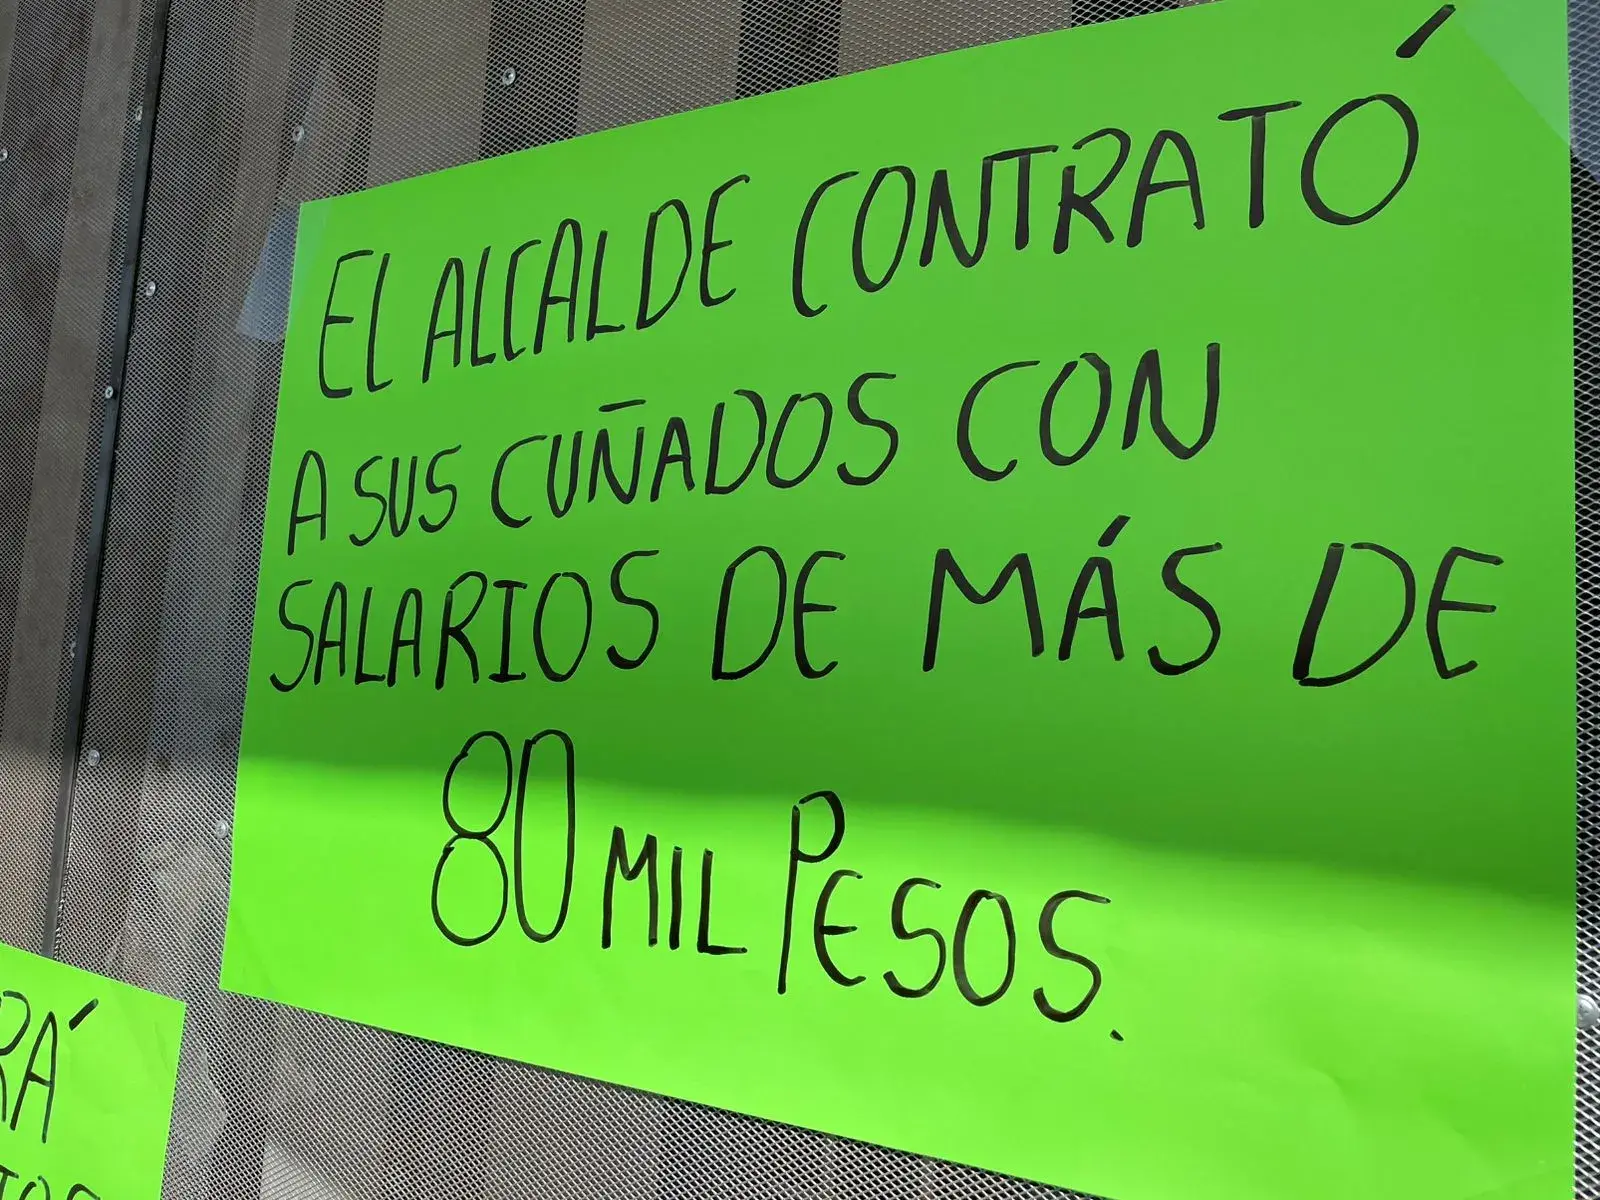 EL ALCALDE CONTRATÓ
A SUS CUÑADOS CON
SALARIOS DE MÁS DE
80 MIL PESOS.